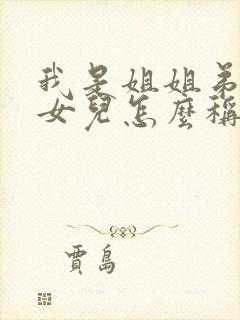 我是姐姐弟
女兒怎麼稱
賈島